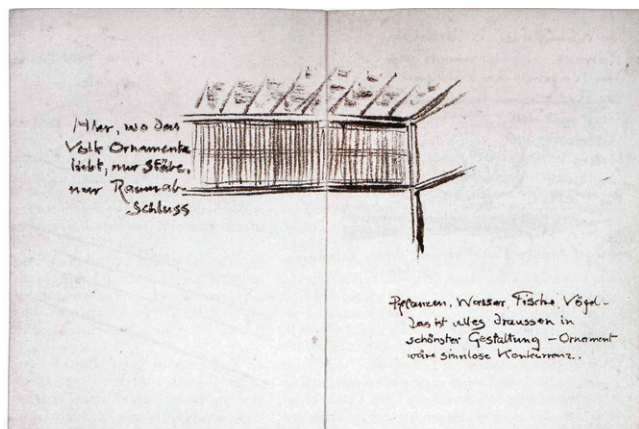 Hier, wo das
Volk Ornamente
liebt, nur Stäbe,
nur Raumab-
schluss
Pflanzen, Wasser, Fische, Vögel -
das ist alles draussen in
schönster Gestaltung - Ornament
wäre sinnlose Konkurrenz..